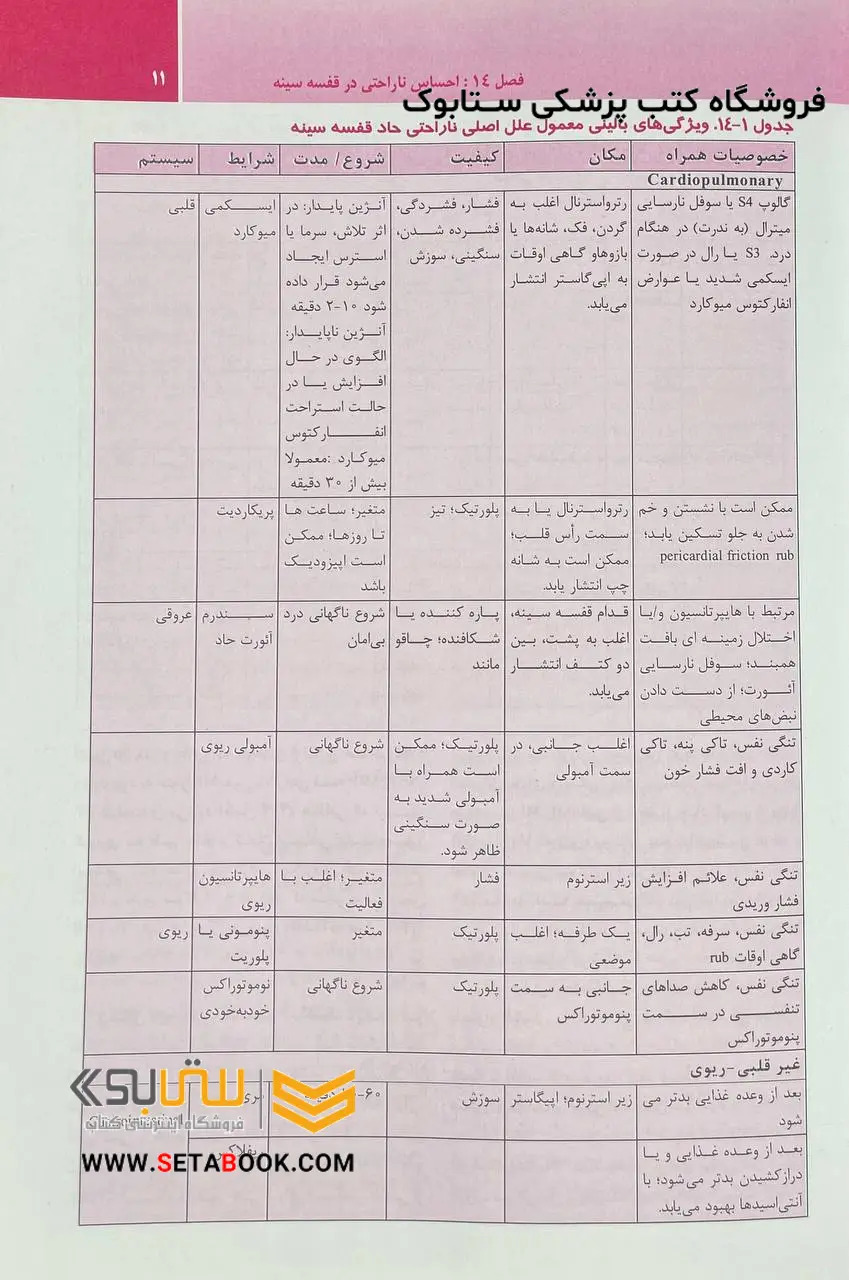 ۱۱
فصل ۱۴ : احساس ناراحتی در قفسه سینه
فروشگاه کتب پزشکی ستابوک
جدول ۱-۱۴. ویژگی‌های بالینی معمول علل اصلی ناراحتی حاد قفسه سینه
سیستم شرایط شروع/ مدت کیفیت مکان خصوصیات همراه
Cardiopulmonary
قلبی
ایسکمی
میوکارد
آنژین پایدار: در
اثر تلاش، سرما یا
استرس ایجاد
می‌شود قرار داده
شود ۱۰-۲ دقیقه
آنژین ناپایدار:
الگوی در حال
افزایش یا در
حالت استراحت
انفارکتوس
میوکارد :معمولا
بیش از ۳۰ دقیقه
فشار، فشردگی،
فشرده شدن،
سنگینی، سوزش
رترواسترنال اغلب به
گردن، فک، شانه‌ها یا
بازوهاو گاهی اوقات
به اپی‌گاستر انتشار
می‌یابد.
گالوپ S4 یا سوفل نارسایی
میترال (به ندرت) در هنگام
درد. S3 یا رال در صورت
ایسکمی شدید یا عوارض
انفارکتوس میوکارد
پریکاردیت
متغیر؛ ساعت ها
تا روزها؛ ممکن
است اپیزودیک
باشد
پلورتیک؛ تیز
رترواسترنال یا به
سمت رأس قلب؛
ممکن است به شانه
چپ انتشار یابد.
ممکن است با نشستن و خم
شدن به جلو تسکین یابد؛
pericardial friction rub
عروقی
سندرم
آئورت حاد
شروع ناگهانی درد
بی‌امان
پاره کننده یا
شکافنده؛ چاقو
مانند
قدام قفسه سینه،
اغلب به پشت، بین
دو کتف انتشار
می‌یابد.
مرتبط با هایپرتانسیون و/یا
اختلال زمینه ای بافت
همبند؛ سوفل نارسایی
آئورت؛ از دست دادن
نبض‌های محیطی
آمبولی ریوی
شروع ناگهانی
پلورتیک؛ ممکن
است همراه با
آمبولی شدید به
صورت سنگینی
ظاهر شود.
اغلب جانبی، در
سمت آمبولی
تنگی نفس، تاکی پنه، تاکی
کاردی و افت فشار خون
هایپرتانسیون
ریوی
متغیر؛ اغلب با
فعالیت
فشار
زیر استرنوم
تنگی نفس، علائم افزایش
فشار وریدی
ریوی
پنومونی یا
پلوریت
متغیر
پلورتیک
یک طرفه؛ اغلب
موضعی
تنگی نفس، سرفه، تب، رال،
گاهی اوقات rub
نوموتوراکس
خودبه‌خودی
شروع ناگهانی
پلورتیک
جانبی به سمت
پنوموتوراکس
تنگی نفس، کاهش صداهای
تنفسی در سمت
پنوموتوراکس
غیر قلبی-ریوی
سوزش
زیر استرنوم؛ اپیگاستر
بعد از وعده غذایی بدتر می
شود
بعد از وعده غذایی و یا
درازکشیدن بدتر می‌شود؛ با
آنتی‌اسیدها بهبود می‌یابد.
ستابوک
فروشگاه اینترنتی کتاب
WWW.SETABOOK.COM